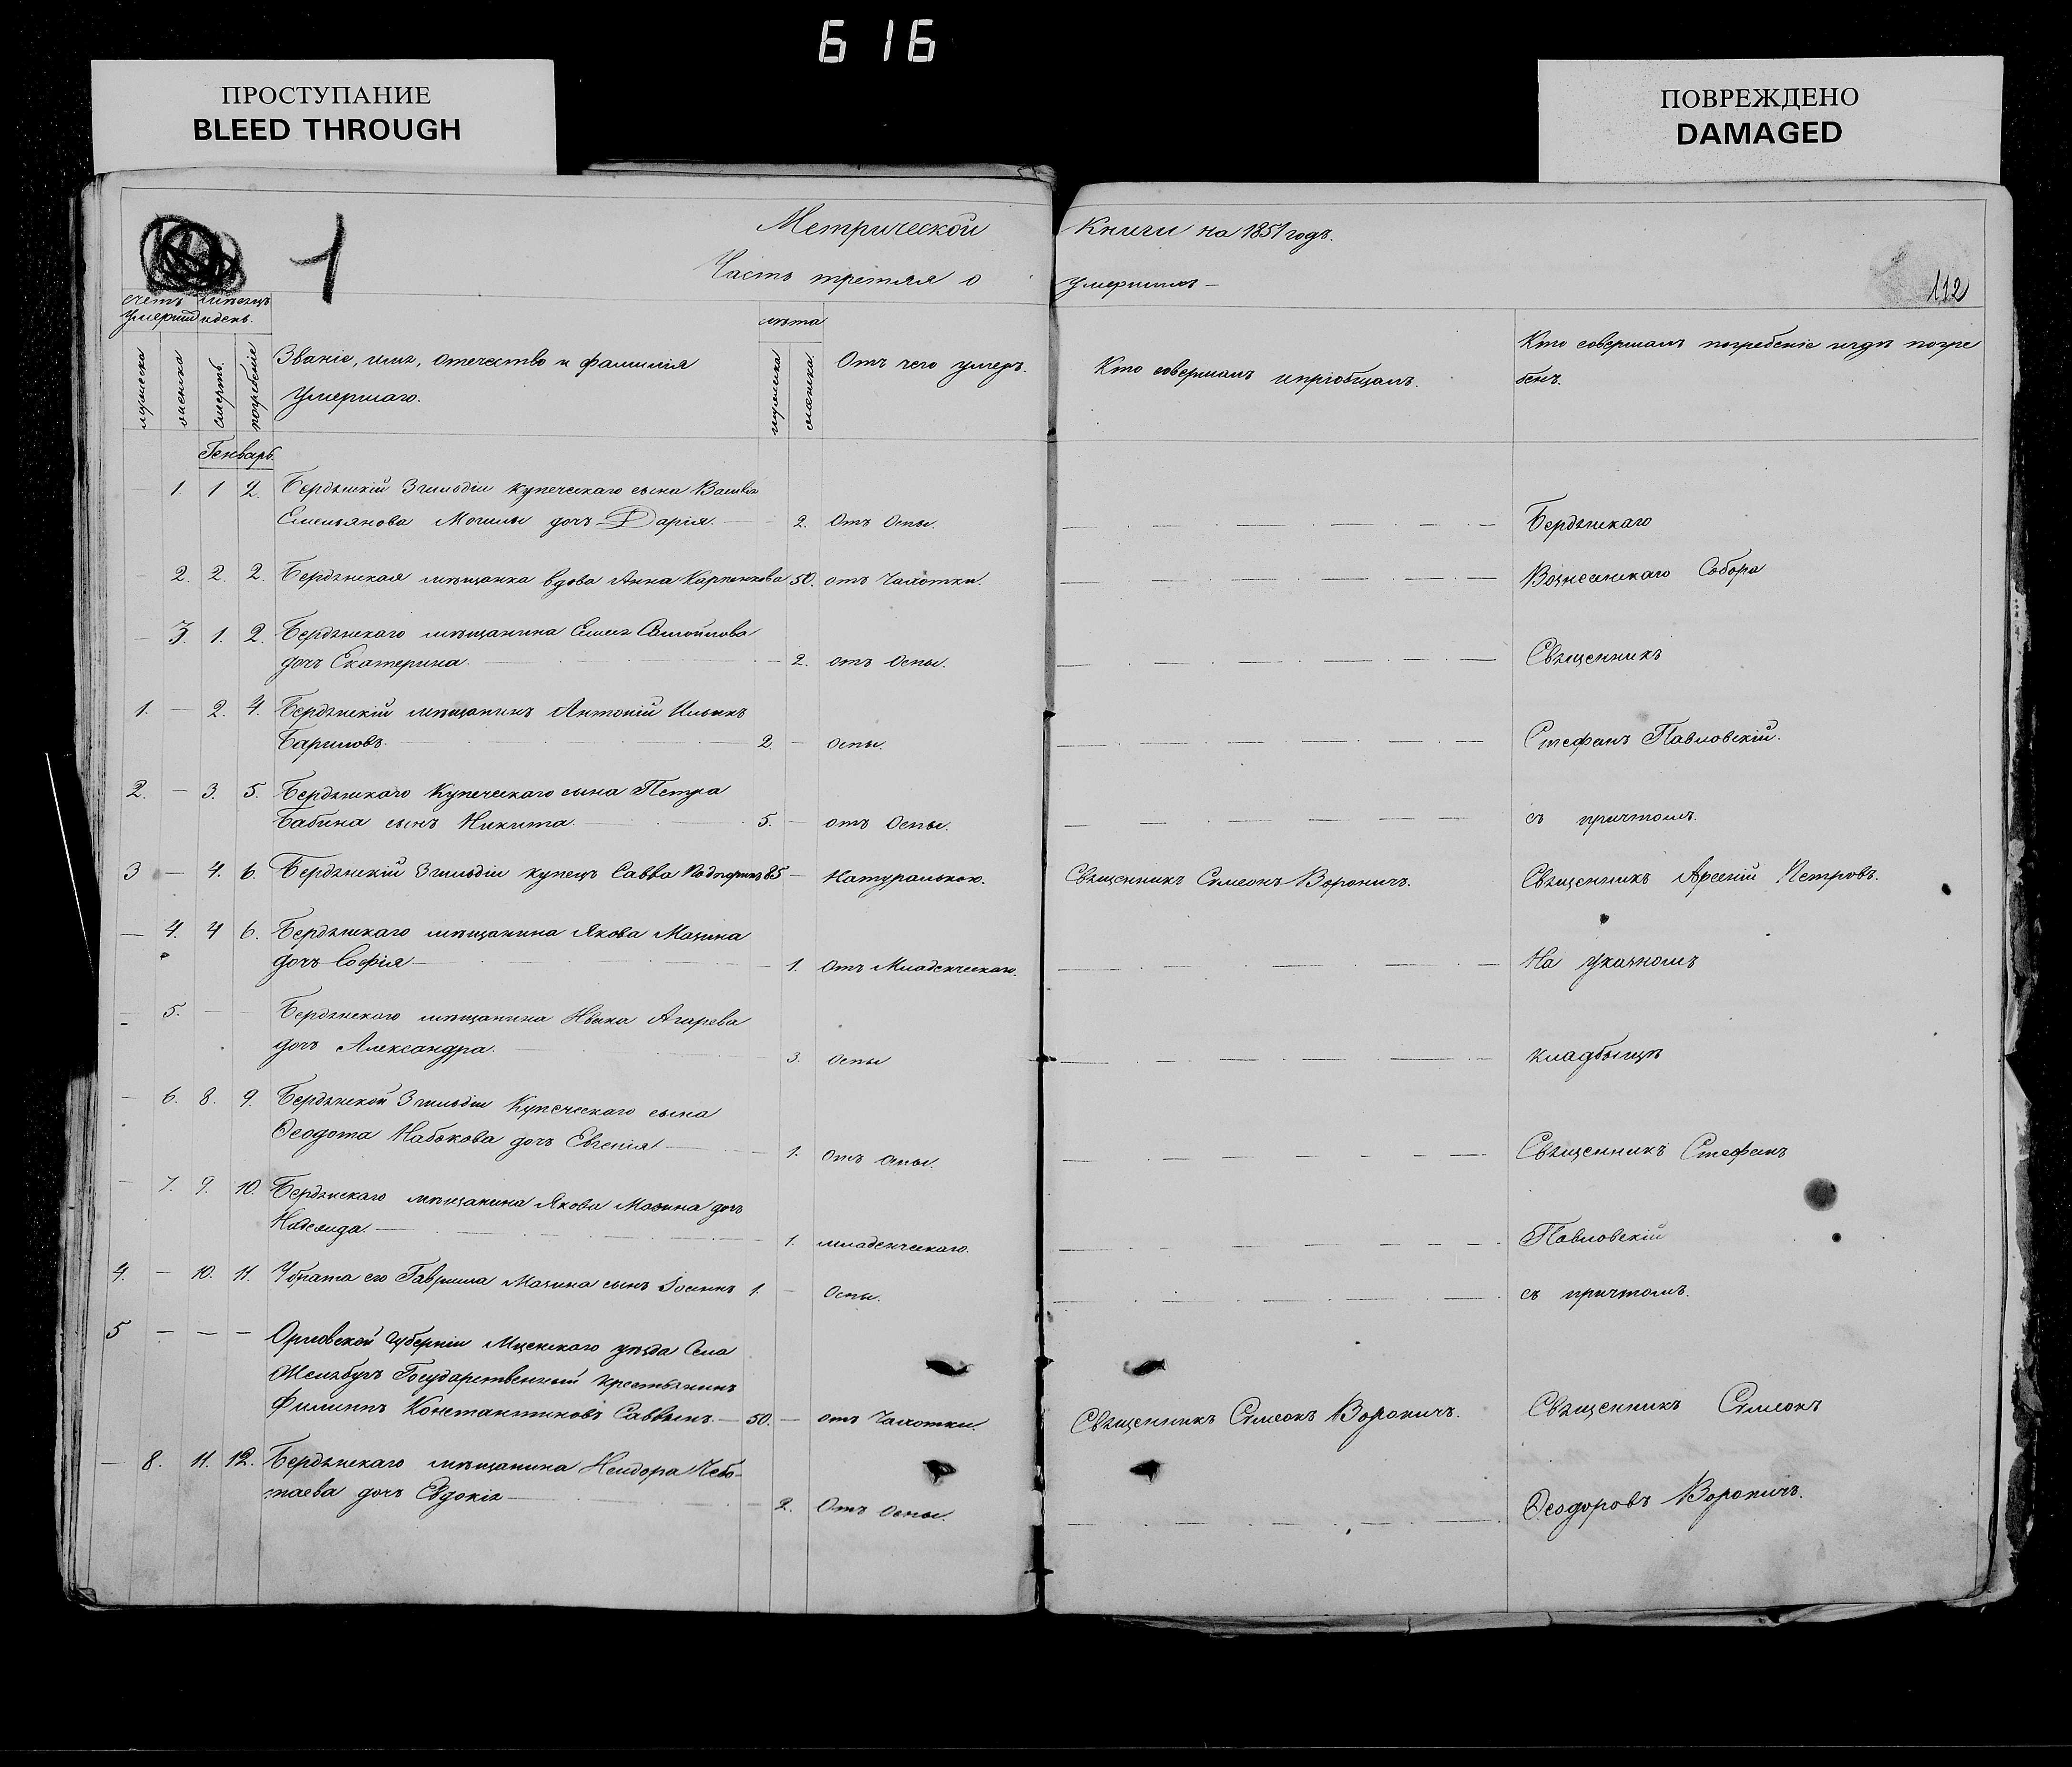 6 16
ПРОСТУПАНИЕ
BLEED THROUGH
ПОВРЕЖДЕНО
DAMAGED
1
Метрической Книги на 1851 годъ.
Часть третяя о умершихъ
112
счетъ умерших
мѣсяцъ и день.
мужеска
женска
смерть.
погребеніе
Званіе, имя, отечество и фамилія
Умершаго.
лѣта
мужеска
женска.
Отъ чего умеръ.
Кто совершалъ и пріобщалъ.
Кто совершалъ погребеніе и гдѣ погре
бенъ.
Генварь.
— 1. 1 2. Бердянскій 3 гильдіи купеческаго сына
Емельянова Могилы дочь Дарія. 2. Отъ Оспы. Бердянскаго
— 2. 2. 2. Бердянская мѣщанка вдова Анна Карпенкова 50. отъ Чахотки. Вознесенскаго Собора
— 3. 1. 2. Бердянскаго мѣщанина Самойлова
дочь Екатерина. 2. отъ Оспы. Священникъ
1. — 2. 4. Бердянскій мѣщанинъ Антоній Ильинъ
Бариловъ. 2. — оспы. Стефанъ Павловскій.
2. — 3. 5. Бердянскаго Купеческаго сына Петра
Бабина сынъ Никита. 5. — отъ Оспы. съ причтомъ.
3 — 4. 6. Бердянскій 3 гильдіи купецъ Савва 85 — Натуральною. Священникъ Симеонъ Вороничъ. Священникъ Арсеній Петровъ.
— 4. 4 6. Бердянскаго мѣщанина Якова Мазина
дочь Софія — 1. Отъ Младенческаго. На указномъ
— 5. — — Бердянскаго мѣщанина Ивана Агарева
дочь Александра. 3. Оспы кладбыщѣ
— 6. 8. 9. Бердянской 3 гильдіи Купеческаго сына
Ѳеодота Набокова дочь Евгенія 1. Отъ Оспы. Священникъ Стефанъ
— 7. 9. 10. Бердянскаго мѣщанина Якова Мазина дочь
Надежда. 1. младенческаго. Павловскій
4. — 10. 11. У брата его Гавриила Мазина сынъ Іосифъ 1. — Оспы. съ причтомъ.
5 — — — Орловской губерніи Мценскаго уѣзда Села
Желябугъ Государственный крестьянинъ
Филиппъ Константиновъ Саввинъ. — 50. — отъ Чахотки. Священникъ Симеонъ Вороничъ. Священникъ Симеонъ
— 8. 11. 12. Бердянскаго мѣщанина Исидора Чебо-
таева дочь Евдокія — 2. Отъ Оспы. Ѳеодоровъ Вороничъ.